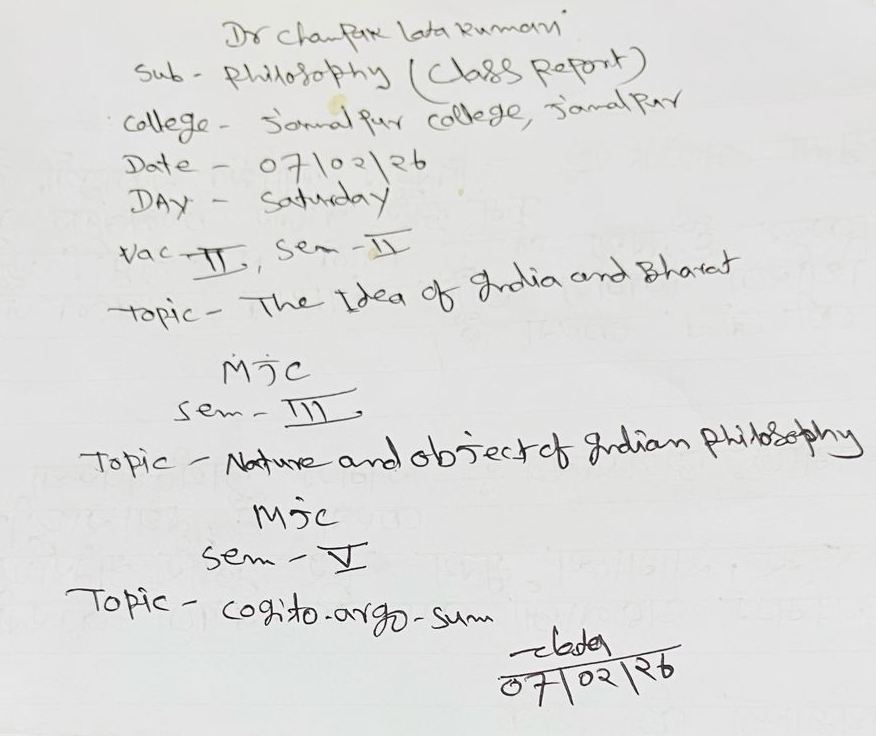 Dr Champak lata kumari
Sub - Philosophy (Class Report)
College - Jamalpur College, Jamalpur
Date - 07/02/26
DAY - Saturday
Vac - II, Sem - II
Topic - The Idea of India and Bharat
MJC
Sem - III
Topic - Nature and object of Indian Philosophy
MJC
Sem - V
Topic - Cogito-argo-sum
07/02/26